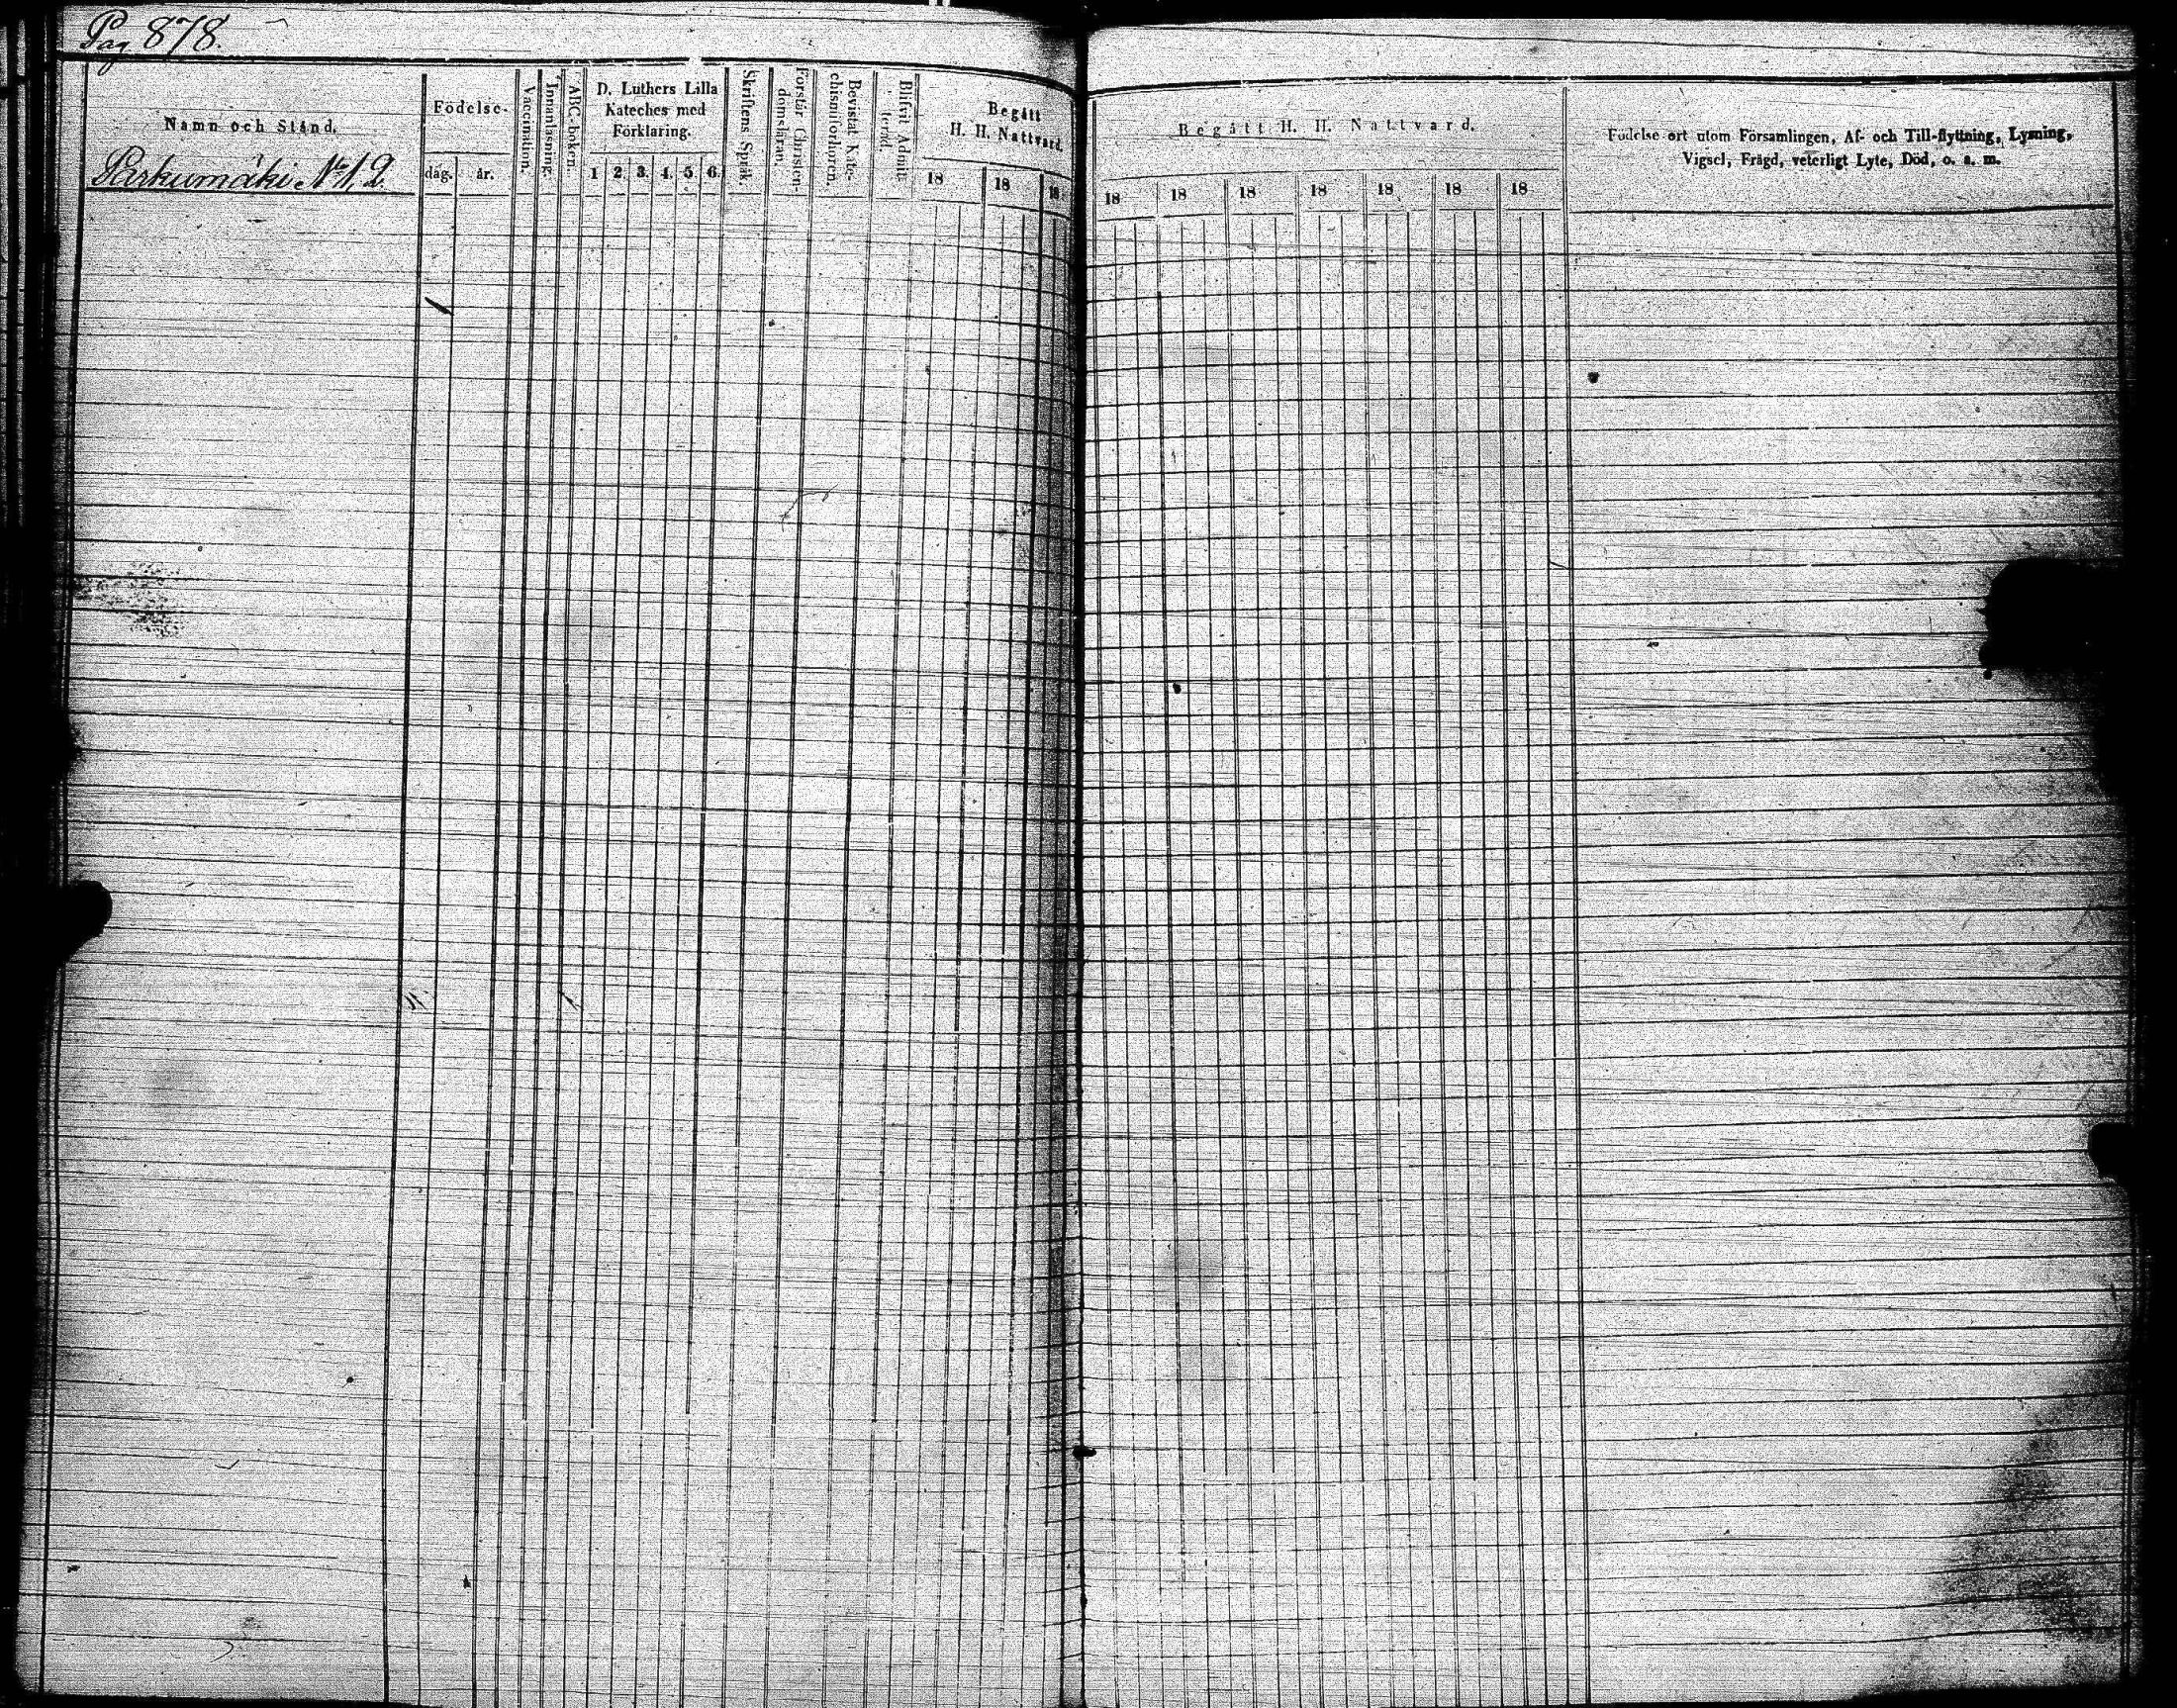 Pag 878.
Namn och Stånd.
Födelse-
dag. år.
Vaccination.
Innanläsning.
ABC-boken.
D. Luthers Lilla
Kateches med
Förklaring.
1 2. 3. 4. 5. 6.
Skriftens Språk.
Förstår Christen-
domsläran.
Bevistat Kate-
chismiförhören.
Blifvit Admitt-
terad.
Begått
H. H. Nattvard.
18 18 18
Parkumäki № 12.
Begått H. H. Nattvard.
18 18 18 18 18 18 18
Födelse ort utom Församlingen, Af- och Till-flyttning, Lysning,
Vigsel, Frägd, veterligt Lyte, Död, o. s. m.